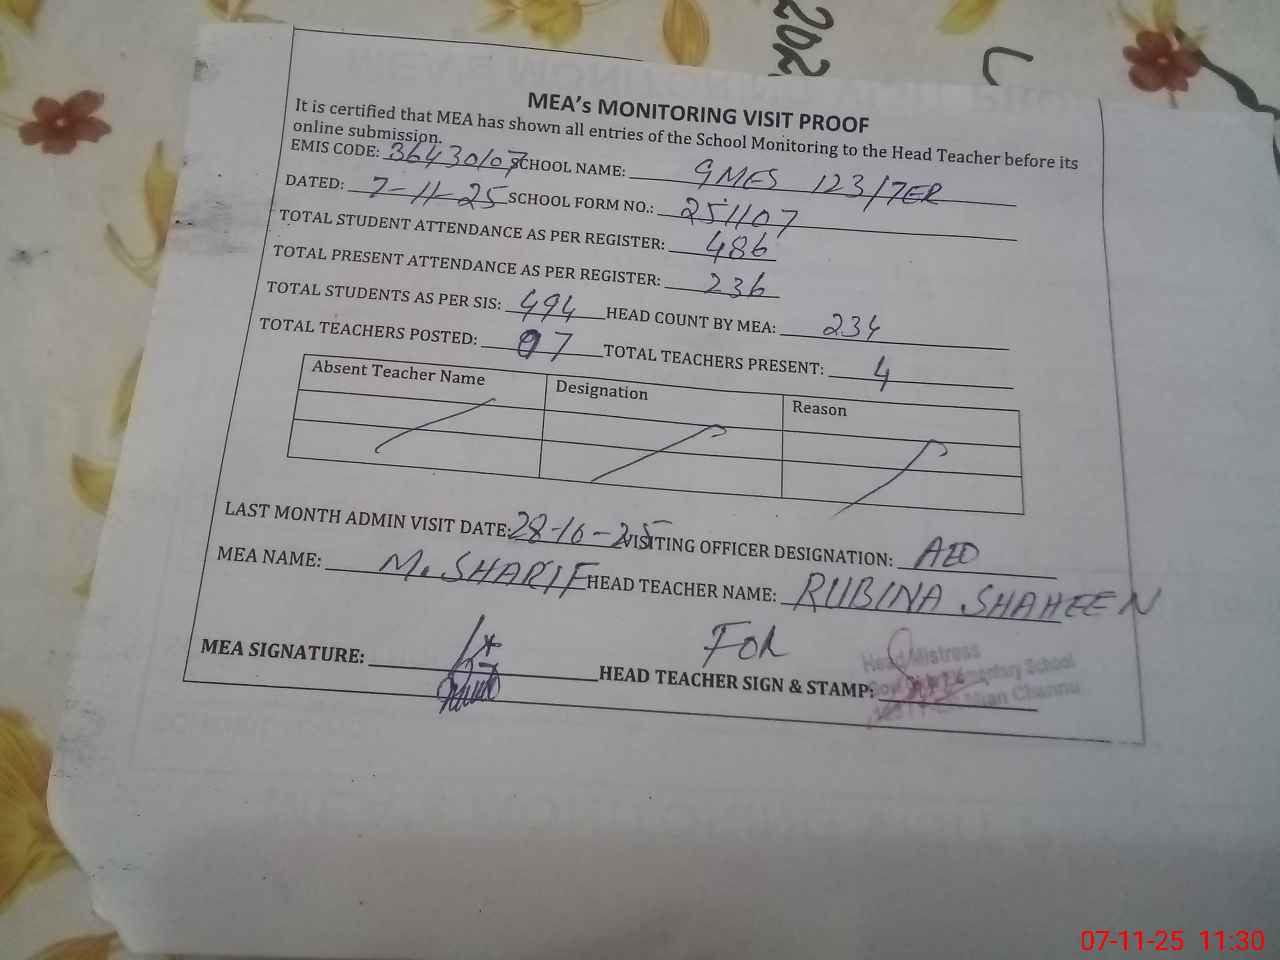 202
MEA's MONITORING VISIT PROOF
It is certified that MEA has shown all entries of the School Monitoring to the Head Teacher before its
online submission.
EMIS CODE: 36430107 SCHOOL NAME: GMES 123/7ER
DATED: 7-11-25 SCHOOL FORM NO.: 251107
TOTAL STUDENT ATTENDANCE AS PER REGISTER: 486
TOTAL PRESENT ATTENDANCE AS PER REGISTER: 236
TOTAL STUDENTS AS PER SIS: 494 HEAD COUNT BY MEA: 234
TOTAL TEACHERS POSTED: 07 TOTAL TEACHERS PRESENT: 4
Absent Teacher Name Designation Reason
LAST MONTH ADMIN VISIT DATE: 28-10-25 VISITING OFFICER DESIGNATION: AEO
MEA NAME: M. SHARIF HEAD TEACHER NAME: RUBINA SHAHEEN
FOR
MEA SIGNATURE: HEAD TEACHER SIGN & STAMP:
Head Mistress
Elementary School
Mian Channu
07-11-25 11:30